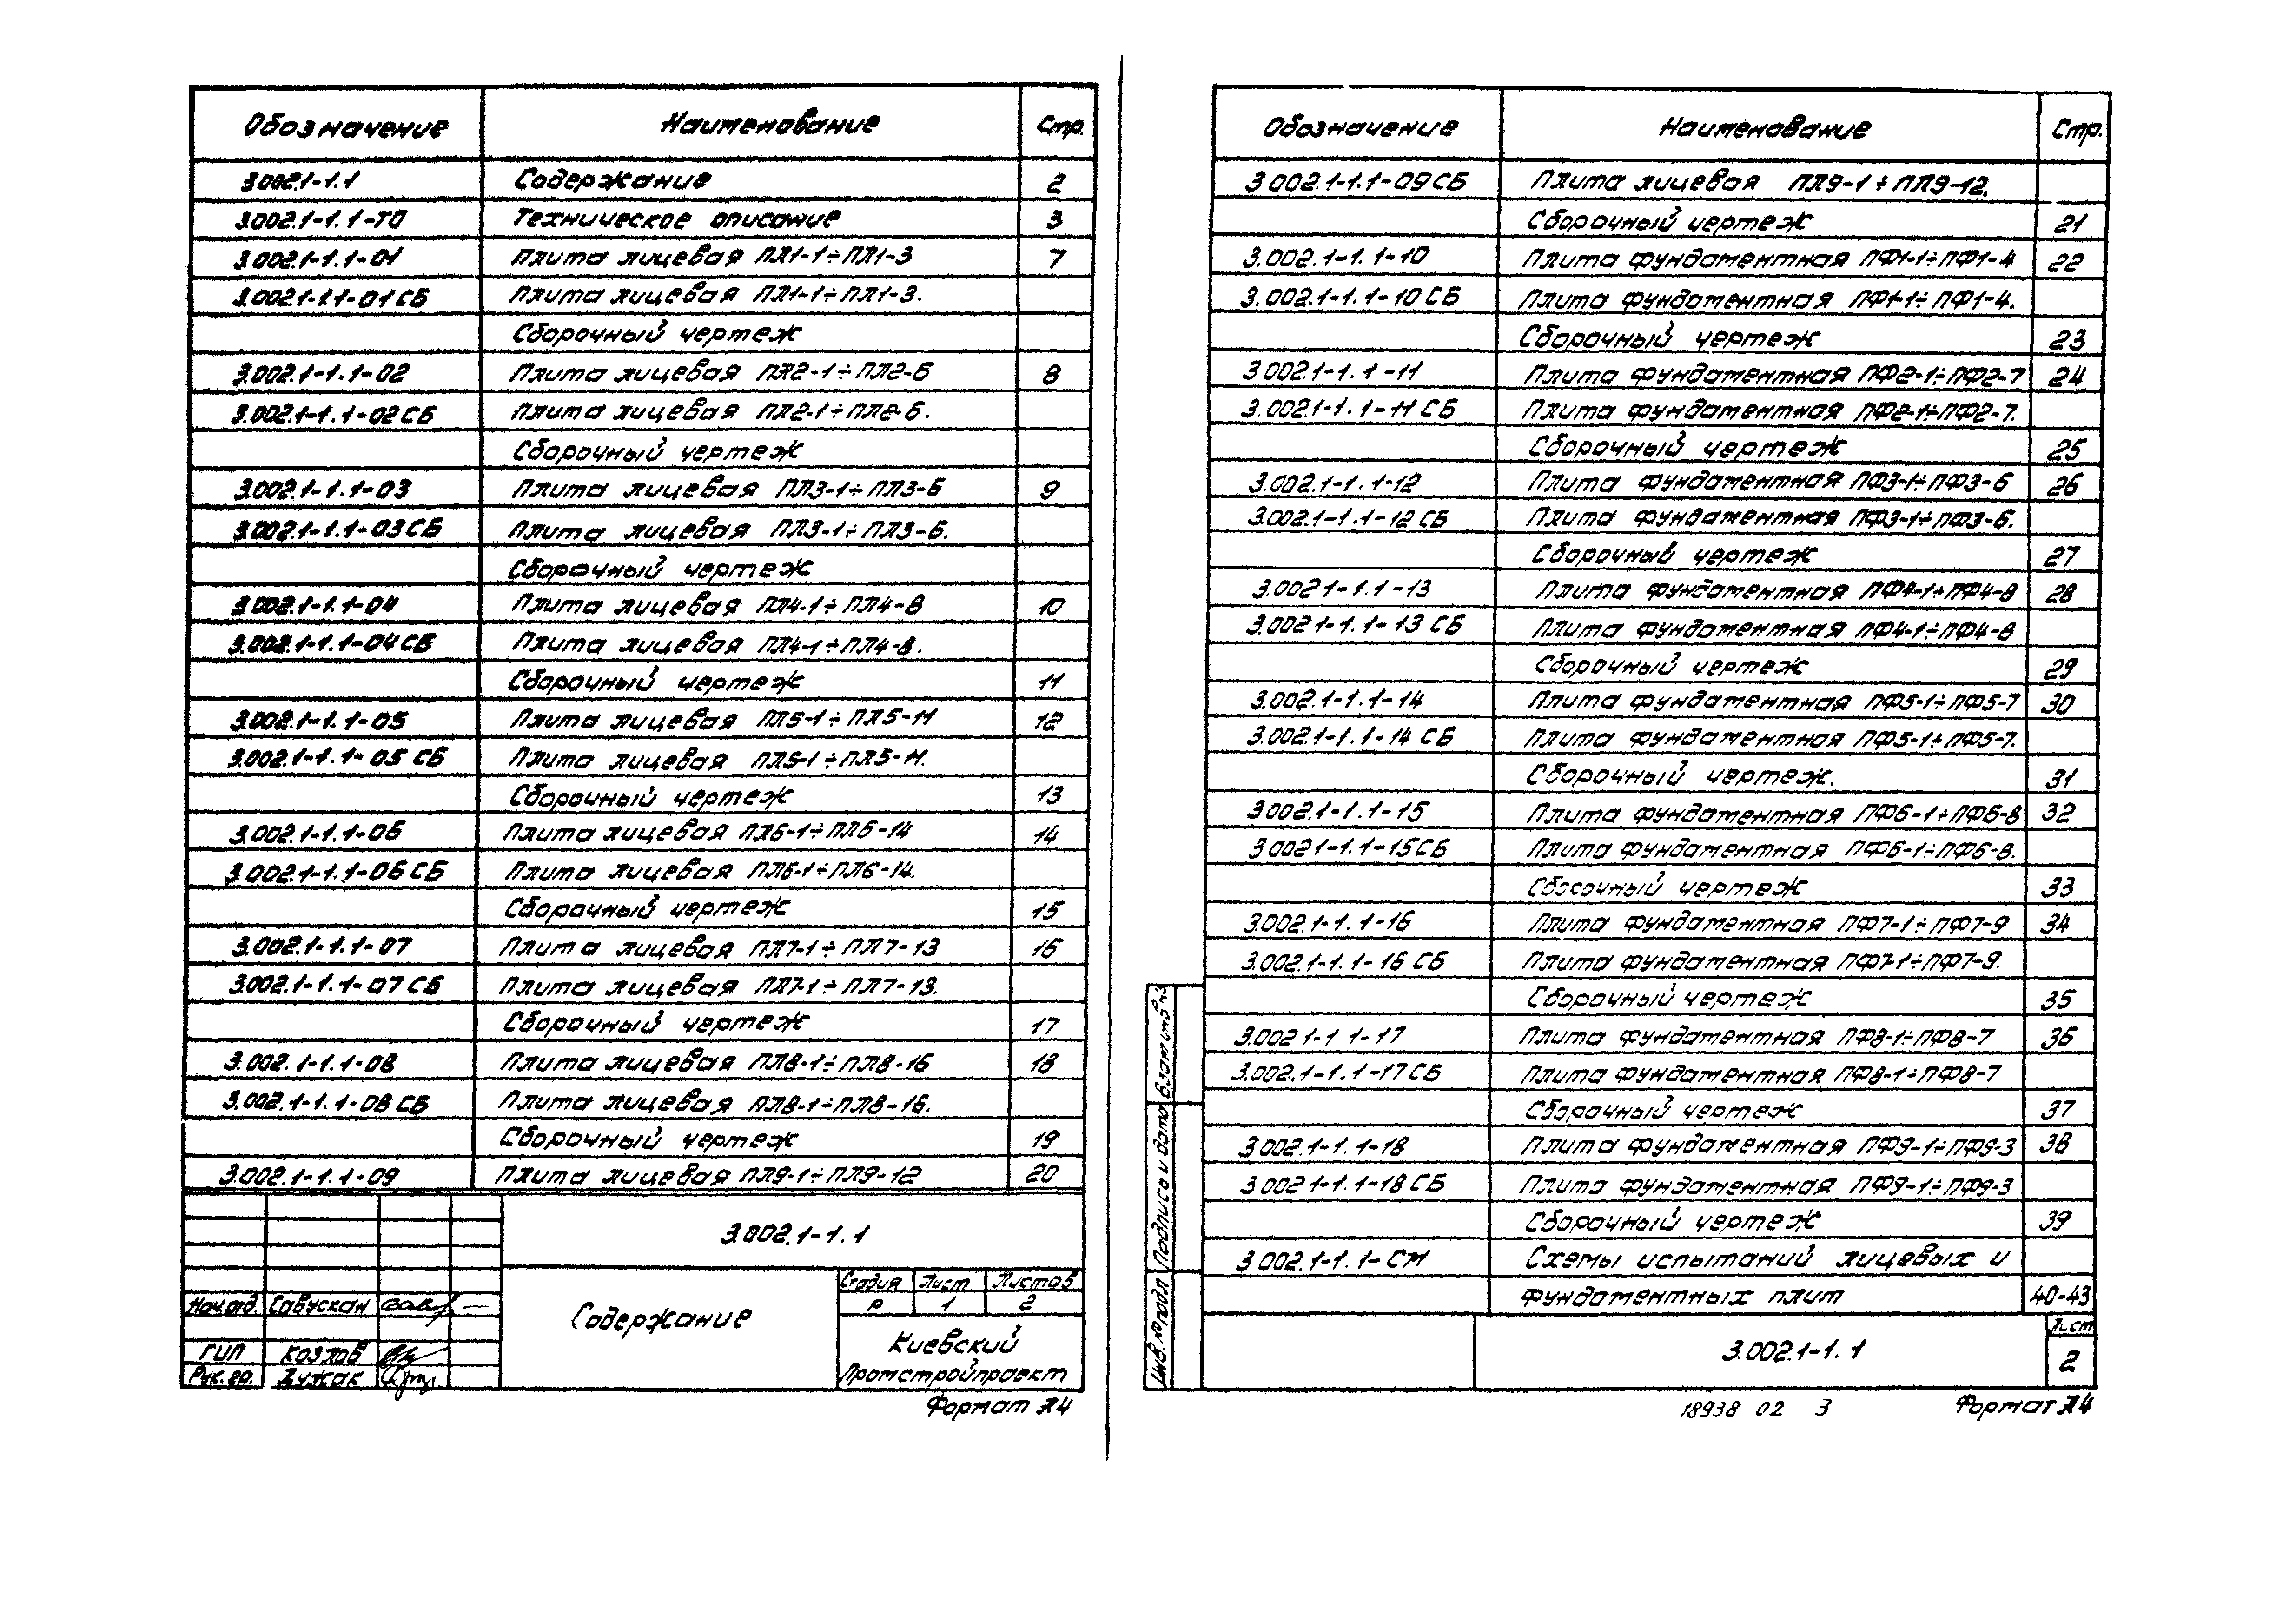 Обозначение Наименование Стр.
3.002.1-1.1 Содержание 2
3.002.1-1.1-ТО Техническое описание 3
3.002.1-1.1-01 Плита лицевая ПЛ1-1÷ПЛ1-3 7
3.002.1-1.1-01СБ Плита лицевая ПЛ1-1÷ПЛ1-3.
Сборочный чертеж
3.002.1-1.1-02 Плита лицевая ПЛ2-1÷ПЛ2-6 8
3.002.1-1.1-02СБ Плита лицевая ПЛ2-1÷ПЛ2-6.
Сборочный чертеж
3.002.1-1.1-03 Плита лицевая ПЛ3-1÷ПЛ3-6 9
3.002.1-1.1-03СБ Плита лицевая ПЛ3-1÷ПЛ3-6.
Сборочный чертеж
3.002.1-1.1-04 Плита лицевая ПЛ4-1÷ПЛ4-8 10
3.002.1-1.1-04СБ Плита лицевая ПЛ4-1÷ПЛ4-8.
Сборочный чертеж 11
3.002.1-1.1-05 Плита лицевая ПЛ5-1÷ПЛ5-11 12
3.002.1-1.1-05 СБ Плита лицевая ПЛ5-1÷ПЛ5-11.
Сборочный чертеж 13
3.002.1-1.1-06 Плита лицевая ПЛ6-1÷ПЛ6-14 14
3.002.1-1.1-06СБ Плита лицевая ПЛ6-1÷ПЛ6-14.
Сборочный чертеж 15
3.002.1-1.1-07 Плита лицевая ПЛ7-1÷ПЛ7-13 16
3.002.1-1.1-07СБ Плита лицевая ПЛ7-1÷ПЛ7-13.
Сборочный чертеж 17
3.002.1-1.1-08 Плита лицевая ПЛ8-1÷ПЛ8-16 18
3.002.1-1.1-08СБ Плита лицевая ПЛ8-1÷ПЛ8-16.
Сборочный чертеж 19
3.002.1-1.1-09 Плита лицевая ПЛ9-1÷ПЛ9-12 20
3.002.1-1.1
Содержание
Стадия Лист Листов
Р 1 2
Нач.отд. Савускан
ГИП Козлов
Рук.гр. Лужак
Киевский
Промстройпроект
Формат А4
Обозначение Наименование Стр.
3.002.1-1.1-09СБ Плита лицевая ПЛ9-1÷ПЛ9-12.
Сборочный чертеж 21
3.002.1-1.1-10 Плита фундаментная ПФ1-1÷ПФ1-4 22
3.002.1-1.1-10СБ Плита фундаментная ПФ1-1÷ПФ1-4.
Сборочный чертеж 23
3.002.1-1.1-11 Плита фундаментная ПФ2-1÷ПФ2-7 24
3.002.1-1.1-11СБ Плита фундаментная ПФ2-1÷ПФ2-7.
Сборочный чертеж 25
3.002.1-1.1-12 Плита фундаментная ПФ3-1÷ПФ3-6 26
3.002.1-1.1-12СБ Плита фундаментная ПФ3-1÷ПФ3-6.
Сборочный чертеж 27
3.002 1-1.1-13 Плита фундаментная ПФ4-1÷ПФ4-8 28
3.002 1-1.1-13 СБ Плита фундаментная ПФ4-1÷ПФ4-8
Сборочный чертеж 29
3.002.1-1.1-14 Плита фундаментная ПФ5-1÷ПФ5-7 30
3.002.1-1.1-14 СБ Плита фундаментная ПФ5-1÷ПФ5-7.
Сборочный чертеж. 31
3.002.1-1.1-15 Плита фундаментная ПФ6-1÷ПФ6-8 32
3 002 1-1.1-15СБ Плита фундаментная ПФ6-1÷ПФ6-8.
Сборочный чертеж 33
3.002.1-1.1-16 Плита фундаментная ПФ7-1÷ПФ7-9 34
3.002.1-1.1-16 СБ Плита фундаментная ПФ7-1÷ПФ7-9.
Сборочный чертеж 35
3.002 1-1 1-17 Плита фундаментная ПФ8-1÷ПФ8-7 36
3.002.1-1.1-17СБ Плита фундаментная ПФ8-1÷ПФ8-7
Сборочный чертеж 37
3 002.1-1.1-18 Плита фундаментная ПФ9-1÷ПФ9-3 38
3 002 1-1.1-18СБ Плита фундаментная ПФ9-1÷ПФ9-3
Сборочный чертеж 39
3 002.1-1.1-СМ Схемы испытаний лицевых и
фундаментных плит 40-43
Инв.№подл Подпись и дата Взам инв №
3.002.1-1.1
Лист
2
18938-02 3 Формат А4